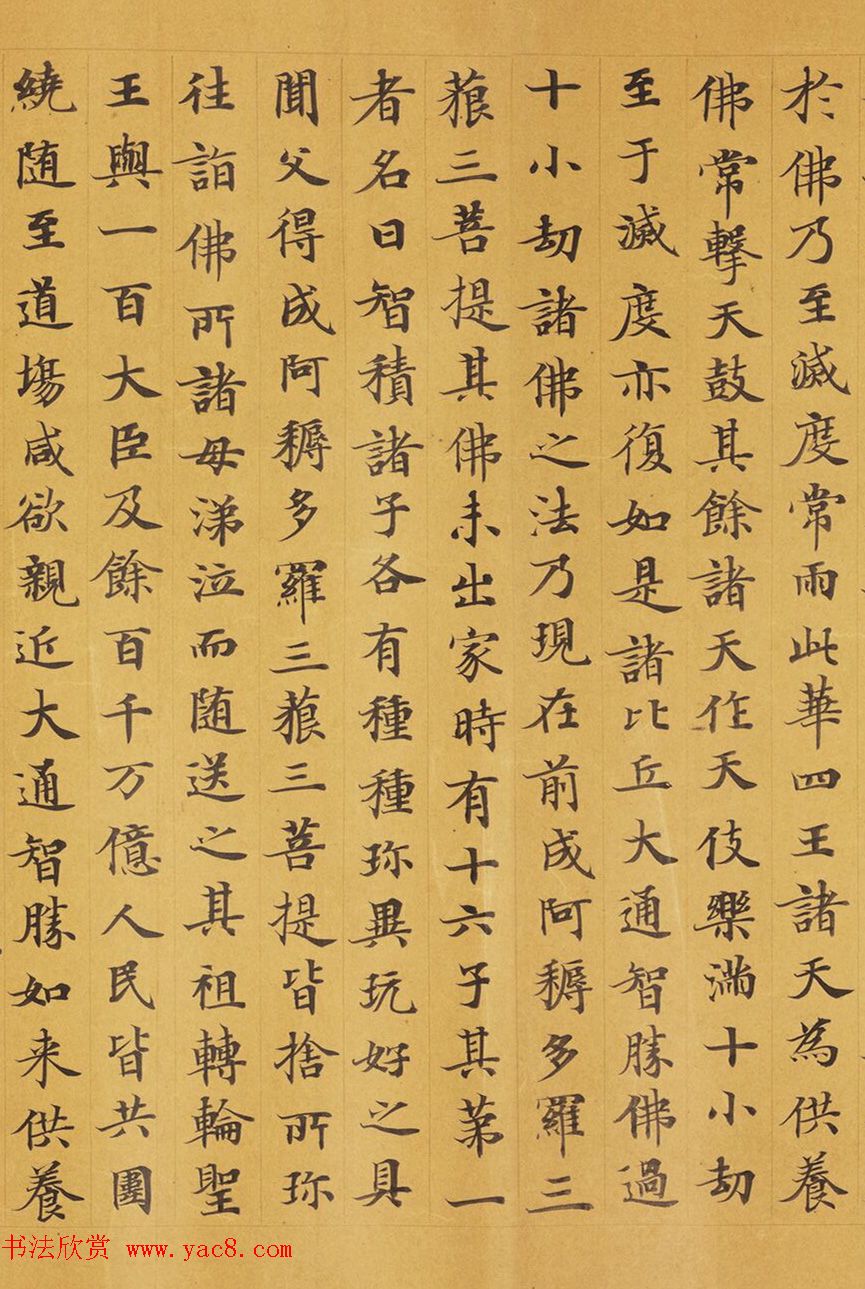 於佛乃至滅度常雨此華四王諸天為供養
佛常擊天鼓其餘諸天作天伎樂滿十小劫
至于滅度亦復如是諸比丘大通智勝佛過
十小劫諸佛之法乃現在前成阿耨多羅三
藐三菩提其佛未出家時有十六子其第一
者名曰智積諸子各有種種珎異玩好之具
聞父得成阿耨多羅三藐三菩提皆捨所珎
往詣佛所諸母涕泣而随送之其祖轉輪聖
王與一百大臣及餘百千万億人民皆共圍
繞随至道場咸欲親近大通智勝如来供養
书法欣赏 www.yac8.com